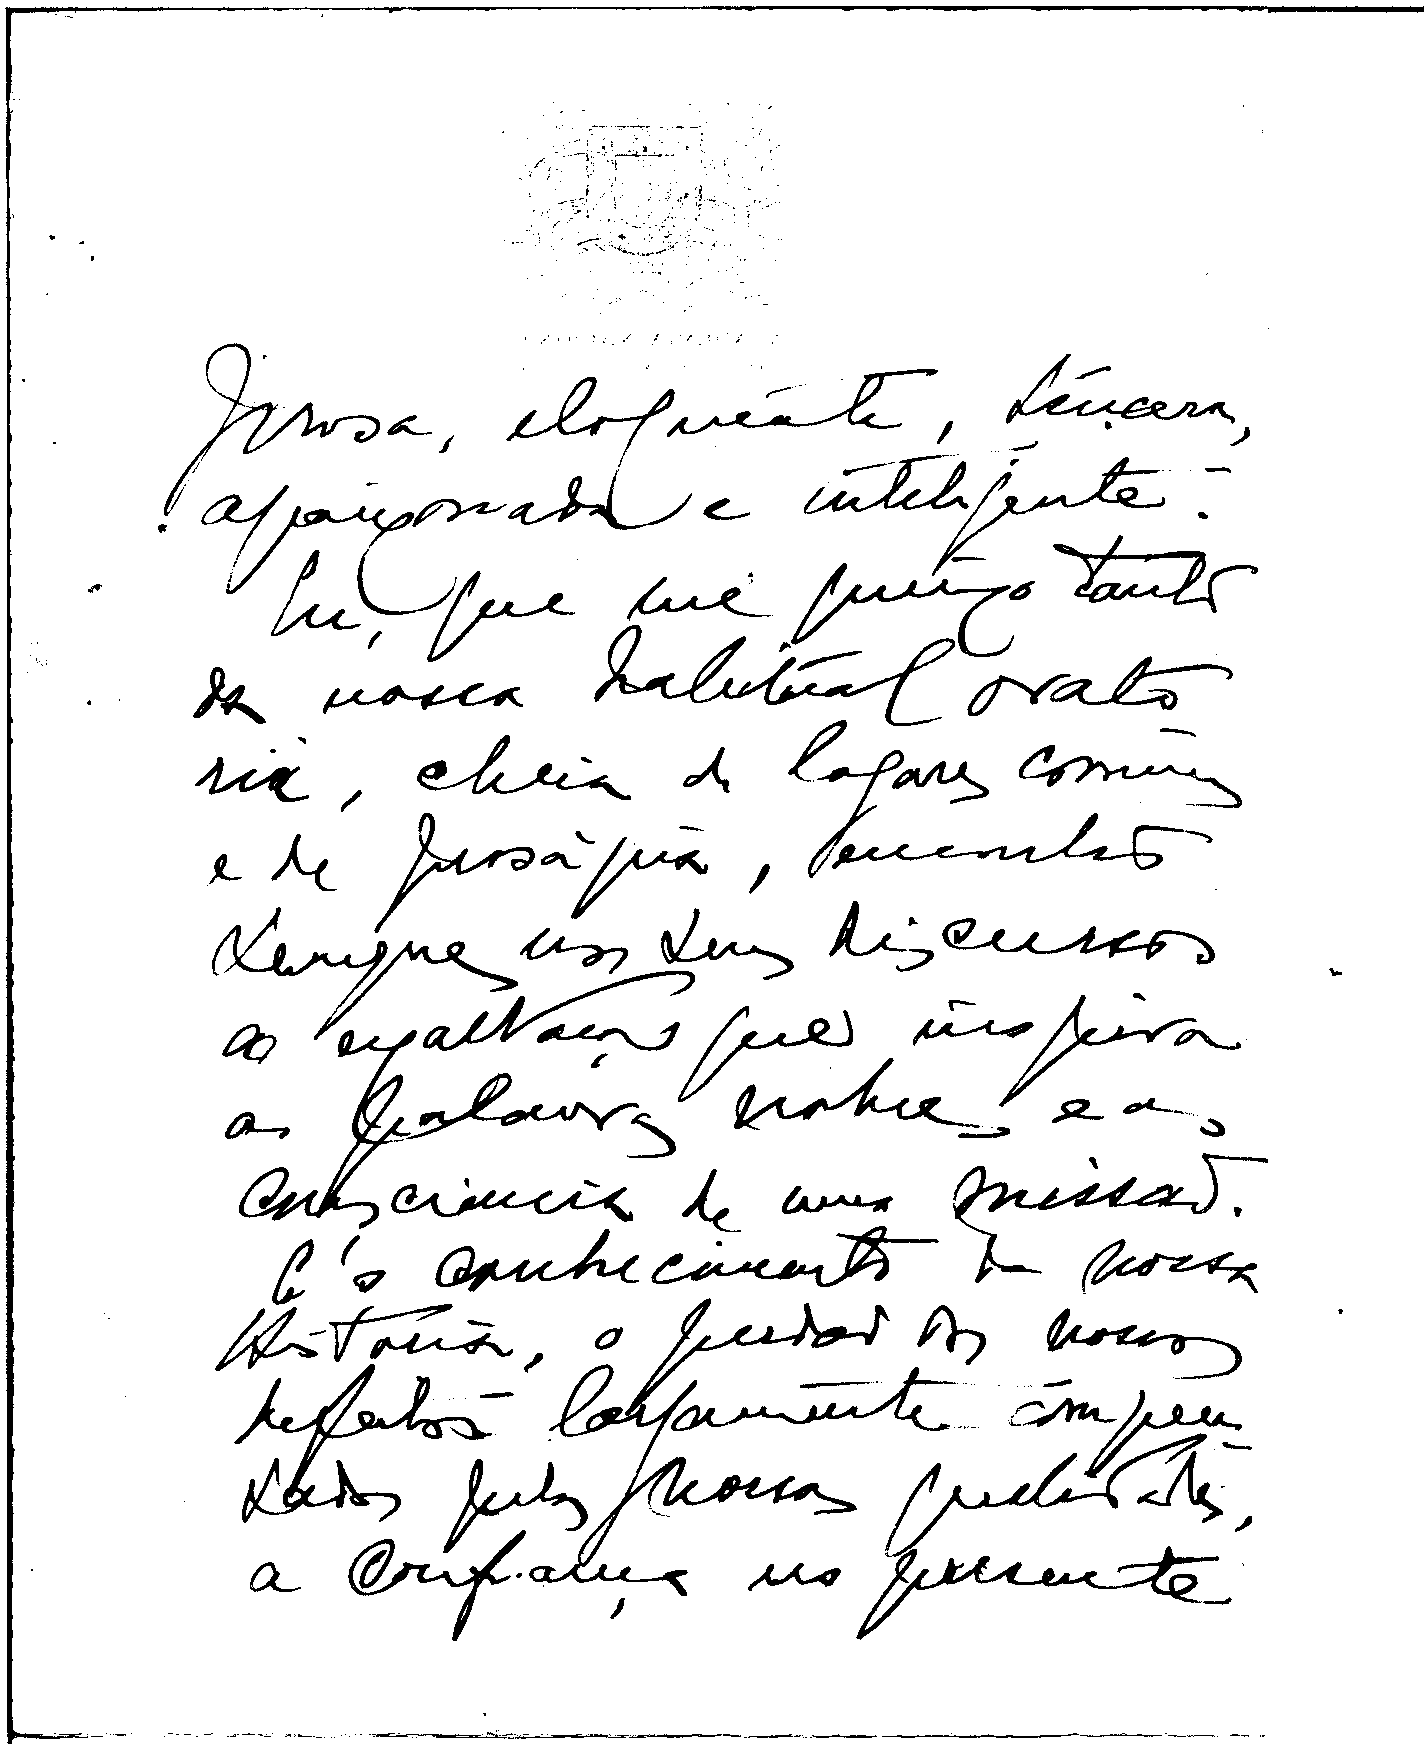 prosa, eloquente, sincera,
apaixonada e inteligente.
Eu, que me queixo tanto
da nossa habitual orató
ria, cheia de logares comúns
e de prosápia, encontro
sempre nos seus discursos
a exaltação que inspira
as palavras nobres e a
consciencia de uma missão.
É o conhecimento da nossa
Historia, o perdão dos nossos
defeitos largamente compen
sados pelas nossas qualidades,
a confiança no presente